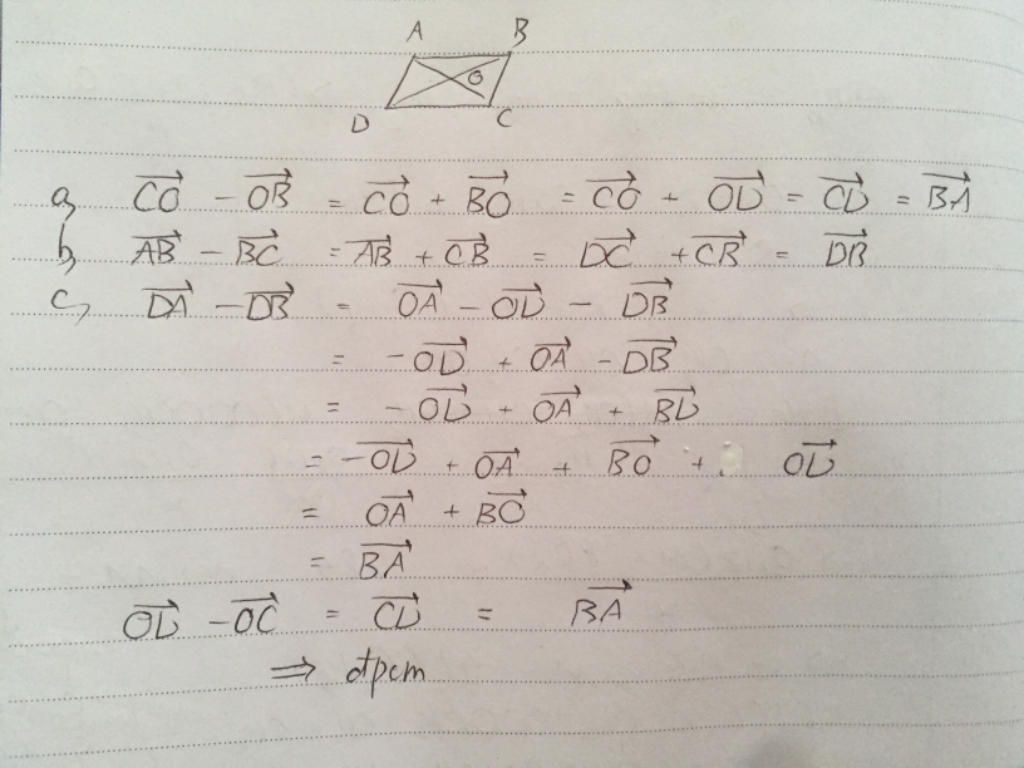 A B
O
D C
a, $\overrightarrow{CO} - \overrightarrow{OB} = \overrightarrow{CO} + \overrightarrow{BO} = \overrightarrow{CO} + \overrightarrow{OD} = \overrightarrow{CD} = \overrightarrow{BA}$
b, $\overrightarrow{AB} - \overrightarrow{BC} = \overrightarrow{AB} + \overrightarrow{CB} = \overrightarrow{DC} + \overrightarrow{CB} = \overrightarrow{DB}$
c, $\overrightarrow{DA} - \overrightarrow{DB} = \overrightarrow{OA} - \overrightarrow{OD} - \overrightarrow{DB}$
$= -\overrightarrow{OD} + \overrightarrow{OA} - \overrightarrow{DB}$
$= -\overrightarrow{OD} + \overrightarrow{OA} + \overrightarrow{BD}$
$= -\overrightarrow{OD} + \overrightarrow{OA} + \overrightarrow{BO} + \overrightarrow{OD}$
$= \overrightarrow{OA} + \overrightarrow{BO}$
$= \overrightarrow{BA}$
$\overrightarrow{OD} - \overrightarrow{OC} = \overrightarrow{CD} = \overrightarrow{BA}$
⇒ đpcm